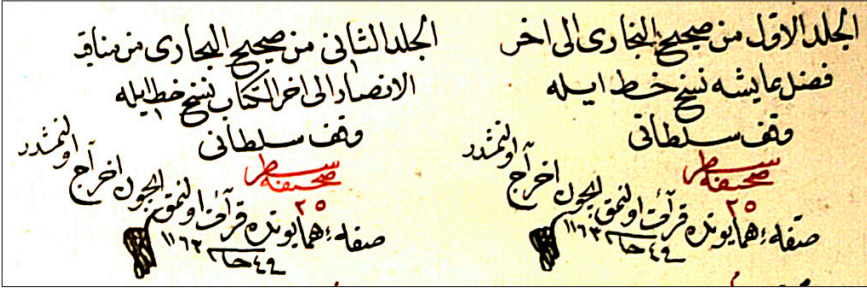 الجلد الاول من صحيح البخارى الى اخر
فضل عايشه نسخ خط ايله
وقف سلطانى
سطر
صحيفه
٢٥
صفهٔ همايونده قرآئت اولنمق ايچون اخراج اولنمشدر
١١٦٣
الجلد الثانى من صحيح البخارى من مناقب
الانصار الى اخر الكتاب نسخ خط ايله
وقف سلطانى
سطر
صحيفه
٢٥
صفهٔ همايونده قرآئت اولنمق ايچون اخراج اولنمشدر
١١٦٣